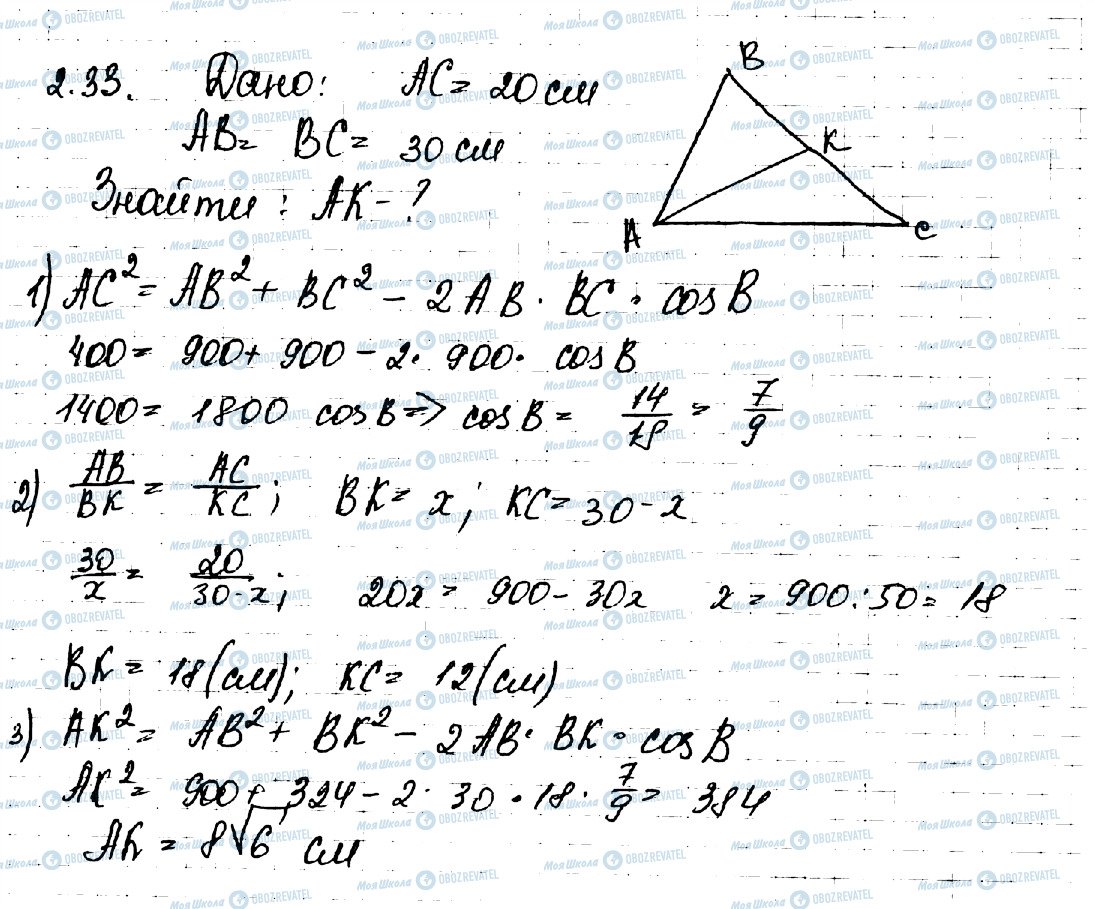 2.33. Дано: AC = 20 см
AB = BC = 30 см
Знайти: AK - ?
B
K
A
C
1) AC² = AB² + BC² - 2AB · BC · cosB
400 = 900 + 900 - 2 · 900 · cosB
1400 = 1800 cosB => cosB = 14/18 = 7/9
2) AB/BK = AC/KC; BK = x; KC = 30 - x
30/x = 20/30-x; 20x = 900 - 30x x = 900 : 50 = 18
BK = 18 (см); KC = 12 (см)
3) AK² = AB² + BK² - 2AB · BK · cosB
AK² = 900 + 324 - 2 · 30 · 18 · 7/9 = 384
AK = 8√6 см
Моя Школа OBOZREVATEL